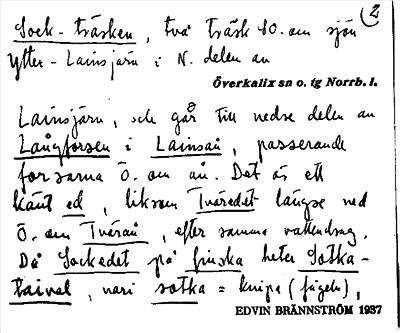 2
Sock-träsken, två träsk SO. om sjön
Ytter-Lainsjärv i N. delen av
Överkalix sn o. tg Norrb. l.
Lainsjärv, och går till nedre delen av
Långforsen i Lainsån, passerande
forsarna Ö. om ån. Det är ett
känt ed, liksom Tväredet längre ned
Ö. om Tvärån, efter samma vattendrag.
Då Sockedet på finska heter Sotka-
taival, vari sotka = knipa (fågeln),
EDVIN BRÄNNSTRÖM 1937